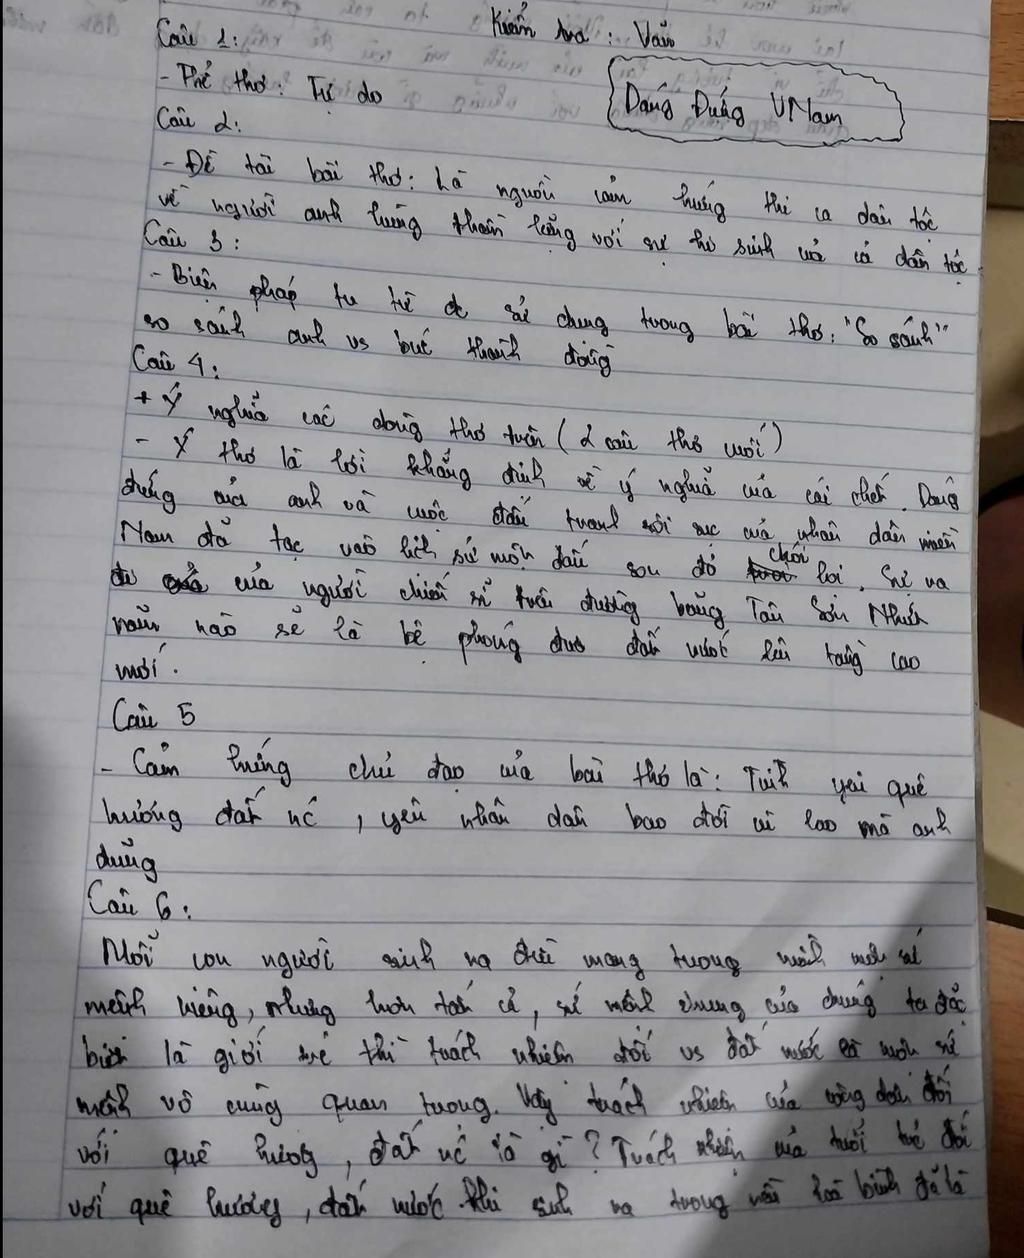 Kiểm tra : Văn
Câu 1:
- Thể thơ: Tự do
Dáng Đứng VNam
Câu 2:
- Đề tài bài thơ: Là nguồn cảm hứng thi ca dân tộc
về người anh hùng thầm lặng với sự hi sinh và cả dân tộc
Câu 3:
- Biện pháp tu từ đc sử dung trong bài thơ: "So sánh"
so sánh anh vs bức thành đồng
Câu 4:
+ Ý nghĩa các dòng thơ trên (2 câu thơ cuối)
- Ý thơ là lời khẳng định về ý nghĩa của cái chết. Dáng
đứng của anh và cuộc đấu tranh sôi sục của nhân dân miền
Nam đã tạc vào lịch sử một dấu son đỏ chói lọi. Sự ra
đi của người chiến sĩ trên đường băng Tân Sơn Nhứt
năm nào sẽ là bệ phóng đưa đất nước lên tầng cao
mới.
Câu 5
- Cảm hứng chủ đạo của bài thơ là: Tình yêu quê
hương đất nc, yêu nhân dân bao đời vì lao mà anh
dũng
Câu 6:
Mỗi con người sinh ra đều mang trong mình một sứ
mệnh riêng, nhưng hơn tất cả, sứ mệnh chung của chúng ta đặc
biệt là giới trẻ thì trách nhiệm đối vs đất nước là một sứ
mệnh vô cùng quan trọng. Vậy trách nhiệm của công dân đối
với quê hương, đất nc là gì? Trách nhiệm của tuổi trẻ đối
với quê hương, đất nước khi sinh ra trong nền hoà bình đã là